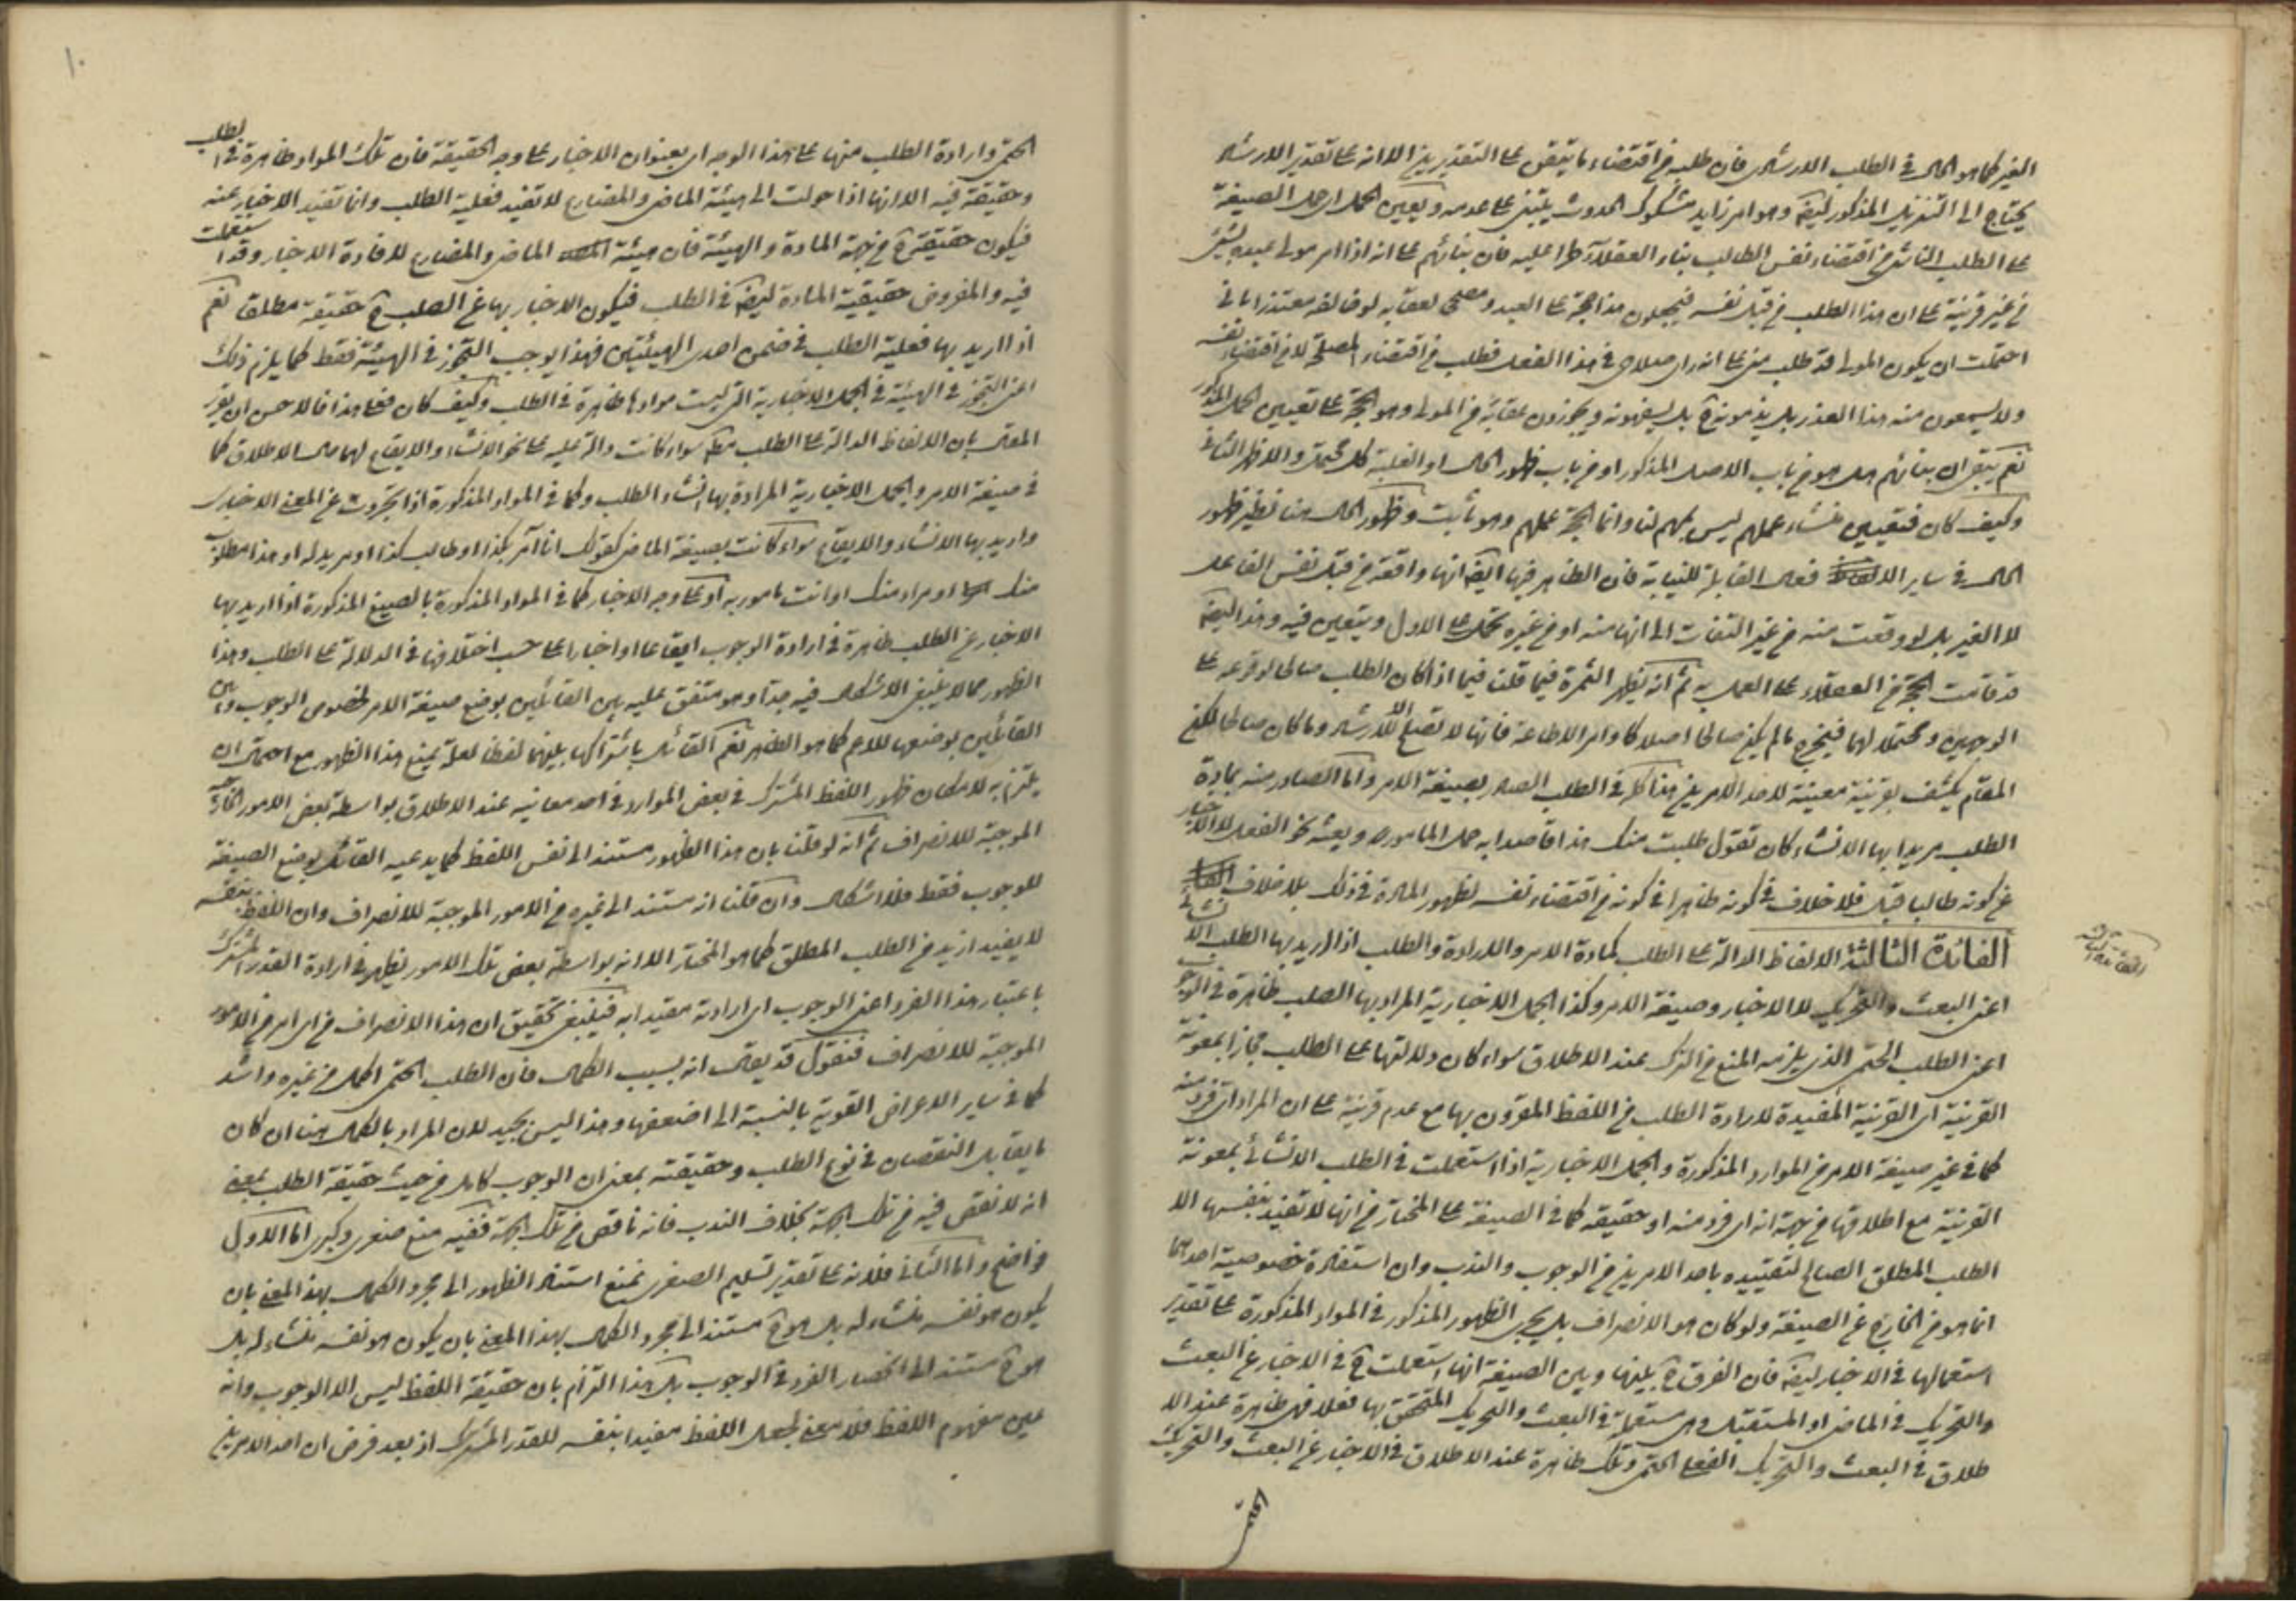 الغير كما هو الحال في الطلب الارشادي فان طلبه من اقتضاء ما يتبقى على التقديرين الا انه على تقدير الارشاد
يحتاج الى التنزيل المذكور ايضا وهو امر زايد مشكوك الحدوث يبتنى على عدمه ويتعين الحمل اي حمل الصيغة
على الطلب الناشئ من اقتضاء نفس الطالب بناء العقلاء طرا عليه فان بنائهم على انه اذا امر مولى عبده بشئ
من غير قرينة على ان هذا الطلب من قبل نفسه فيجعلون هذا حجة على العبد ومصححا لعقابه لو خالفه معتذرا باني
احتملت ان يكون المولى قد طلب مني على انه راى صلاحي في هذا الفعل فطلب من اقتضاء المصلحة لا من اقتضاء نفسه
ولا يسمعون منه هذا العذر بل يذمونه ح بل يسفهونه ويجوزون عقابه من المولى وهو الحجة على تعيين الحمل المذكور
نعم يبقى ان بنائهم هل هو من باب الاصل المذكور او من باب ظهور الحال او الغلبة كل محتمل والاظهر الثاني
وكيف كان فتعيين منشاء عملهم ليس بمهم لنا وانما الحجة عملهم وهو ثابت وظهور الحال هنا نظير ظهور
الحال في ساير الافعال القابلة للنيابة فان الظاهر فيها ايضا انها واقعة من قبل نفس الفاعل
لا الغير بل لو وقعت منه من غير التفات الى انها منه او من غيره تحمل على الاول ويتعين فيه وهذا ايضا
قد قامت الحجة من العقلاء على العمل به ثم انه يظهر الثمرة فيما قلنا فيما اذا كان الطلب صالحا لوقوعه على
الوجهين ومحتملا لهما فيخرج ما لم يكن صالحا اصلا كاوامر الاطاعة فانها لا تصلح الا للارشاد وما كان صالحا لكن
المقام يكشف بقرينة معينة لاحد الامرين هذا كله في الطلب الصادر بصيغة الامر واما الصادر منه بمادة
الطلب مريدا بها الانشاء كان تقول طلبت منك هذا قاصدا به حمل المامور وبعثه نحو الفعل لا الاخبار
عن كونه طالبا قبل فلا خلاف في كونه ظاهرا في كونه من اقتضاء نفسه لظهور المادة في ذلك بلا خلاف
الفائدة الثالثة الالفاظ الدالة على الطلب كمادة الامر والارادة والطلب اذا اريد بها الطلب الانشائي
اعني البعث والتحريك لا الاخبار وصيغة الامر وكذا الجمل الاخبارية المراد بها الطلب ظاهرة في الوجوب
اعني الطلب الحتمي الذي يلزمه المنع من الترك عند الاطلاق سواء كان دلالتها على الطلب مجازا بمعونة
القرينة اي القرينة المفيدة لارادة الطلب من اللفظ المقرون بها مع عدم قرينة على ان المراد اي فرد منه
كما في غير صيغة الامر من الموارد المذكورة والجمل الاخبارية اذا استعملت في الطلب الانشائي بمعونة
القرينة مع اطلاقها من جهة انه اي فرد منه او حقيقة كما في الصيغة على المختار من انها لا تفيد بنفسها الا
الطلب المطلق الصالح لتقييده باحد الامرين من الوجوب والندب وان استفادة خصوصية احدهما
انما هو من الخارج عن الصيغة ولو كان هو الانصراف بل يجري الظهور المذكور في المواد المذكورة على تقدير
استعمالها في الاخبار ايضا فان الفرق ح بينها وبين الصيغة انها استعملت ح في الاخبار عن البعث
والتحريك في الماضي او المستقبل وهي مستعملة في البعث والتحريك المتحقق بها فعلا فهي ظاهرة عند الا
طلاق في البعث والتحريك الفعلي الحتمي وتلك ظاهرة عند الاطلاق في الاخبار عن البعث والتحريك
الحتمي
الفائدة الثالثة
١٠
الحتمي وارادة الطلب منها على هذا الوجه اي بعنوان الاخبار على وجه الحقيقة فان تلك المواد ظاهرة في الطلب
وحقيقة فيه الا انها اذا حولت الى هيئة الماضي والمضارع لا تفيد فعلية الطلب وانما تفيد الاخبار عنه
فيكون حقيقة ح من جهة المادة والهيئة فان هيئة الماضي والمضارع لافادة الاخبار وقد استعملت
فيه والمفروض حقيقية المادة ايضا في الطلب فيكون الاخبار بها عن الطلب ح حقيقة مطلقا نعم
اذا اريد بها فعلية الطلب في ضمن احدى الهيئتين فهذا يوجب التجوز في الهيئة فقط كما يلزم ذلك
اعني التجوز في الهيئة في الجمل الاخبارية التي ليست موادها ظاهرة في الطلب وكيف كان فعلى هذا فالاحسن ان يقرر
المقال بان الالفاظ الدالة على الطلب مط سواء كانت دالة عليه على نحو الانشاء والايقاع لها حال الاطلاق كما
في صيغة الامر والجمل الاخبارية المرادة بها انشاء الطلب وكما في المواد المذكورة اذا تجردت عن المعنى الاخباري
واريد بها الانشاء والايقاع سواء كانت بصيغة الماضي كقولك انا آمر بكذا او طالب كذا او مريد له او هذا مطلوب
منك او مراد منك او انت مامور به او على وجه الاخبار كما في المواد المذكورة بالصيغ المذكورة اذا اريد بها
الاخبار عن الطلب ظاهرة في ارادة الوجوب ايقاعا او اخبارا على حسب اختلافها في الدلالة على الطلب وهذا
الظهور مما لا ينبغي الاشكال فيه جدا وهو متفق عليه بين القائلين بوضع صيغة الامر لخصوص الوجوب وبين
القائلين بوضعها للاعم كما هو الظاهر نعم القائل باشتراكها بينهما لفظا لعله يمنع هذا الظهور مع احتمال ان
يلتزم به لامكان ظهور اللفظ المشترك في بعض الموارد في احد معانيه عند الاطلاق بواسطة بعض الامور الخارجية
الموجبة للانصراف ثم انه لو قلنا بان هذا الظهور مستند الى نفس اللفظ كما يدعيه القائل بوضع الصيغة
للوجوب فقط فلا اشكال وان قلنا انه مستند الى غيره من الامور الموجبة للانصراف وان اللفظ بنفسه
لا يفيد ازيد من الطلب المطلق كما هو المختار الا انه بواسطة بعض تلك الامور يظهر في ارادة القدر المشترك
باعتبار هذا الفرد اعني الوجوب اي ارادته مقيدا به فينبغي تحقيق ان هذا الانصراف من اي امر من الامور
الموجبة للانصراف فنقول قد يقال انه بسبب الكمال فان الطلب الحتمي اكمل من غيره واشد
كما في ساير الاعراض القوية بالنسبة الى اضعفها وهذا ليس بجيد لان المراد بالكمال هنا ان كان
ما يقابل النقصان في نوع الطلب وحقيقته بمعنى ان الوجوب كامل من حيث حقيقة الطلب بمعنى
انه لا نقص فيه من تلك الجهة بخلاف الندب فانه ناقص من تلك الجهة ففيه منع صغرى وكبرى اما الاول
فواضح واما الثاني فلانه على تقدير تسليم الصغرى نمنع استناد الظهور الى مجرد الكمال بهذا المعنى بان
يكون هو نفسه منشاء له بل هو ح مستند الى مجرد الكمال بهذا المعنى بان يكون هو نفسه منشاء له بل
هو ح مستند الى انحصار الفرد في الوجوب بل هذا التزام بان حقيقة اللفظ ليس الا الوجوب وانه
عين مفهوم اللفظ فلا معنى لجعل اللفظ مفيدا بنفسه للقدر المشترك اذ بعد فرض ان احد الامرين